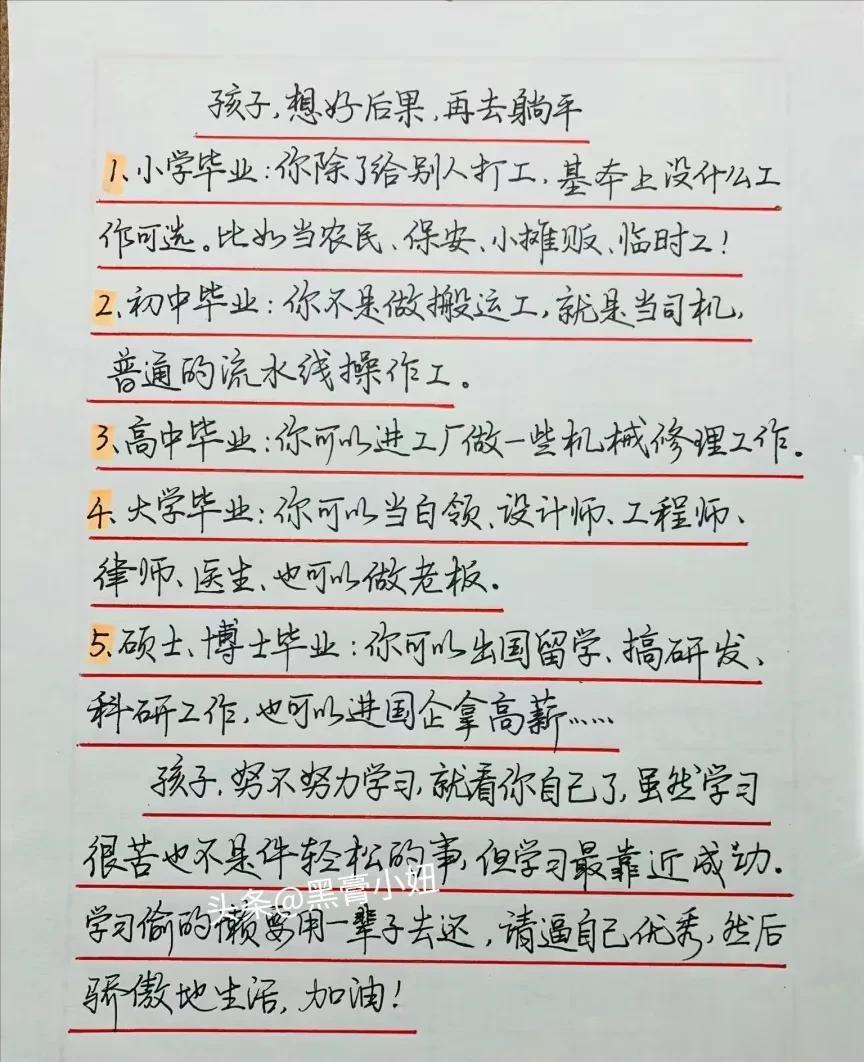 孩子,想好后果,再去躺平
1、小学毕业:你除了给别人打工,基本上没什么工
作可选。比如当农民、保安、小摊贩、临时工!
2、初中毕业:你不是做搬运工,就是当司机,
普通的流水线操作工。
3、高中毕业:你可以进工厂做一些机械修理工作。
4、大学毕业:你可以当白领、设计师、工程师、
律师、医生、也可以做老板。
5、硕士、博士毕业:你可以出国留学、搞研发、
科研工作,也可以进国企拿高薪……
孩子,努不努力学习,就看你自己了,虽然学习
很苦也不是件轻松的事,但学习最靠近成功。
头条@黑膏小妞
学习偷的懒要用一辈子去还,请逼自己优秀,然后
骄傲地生活,加油!